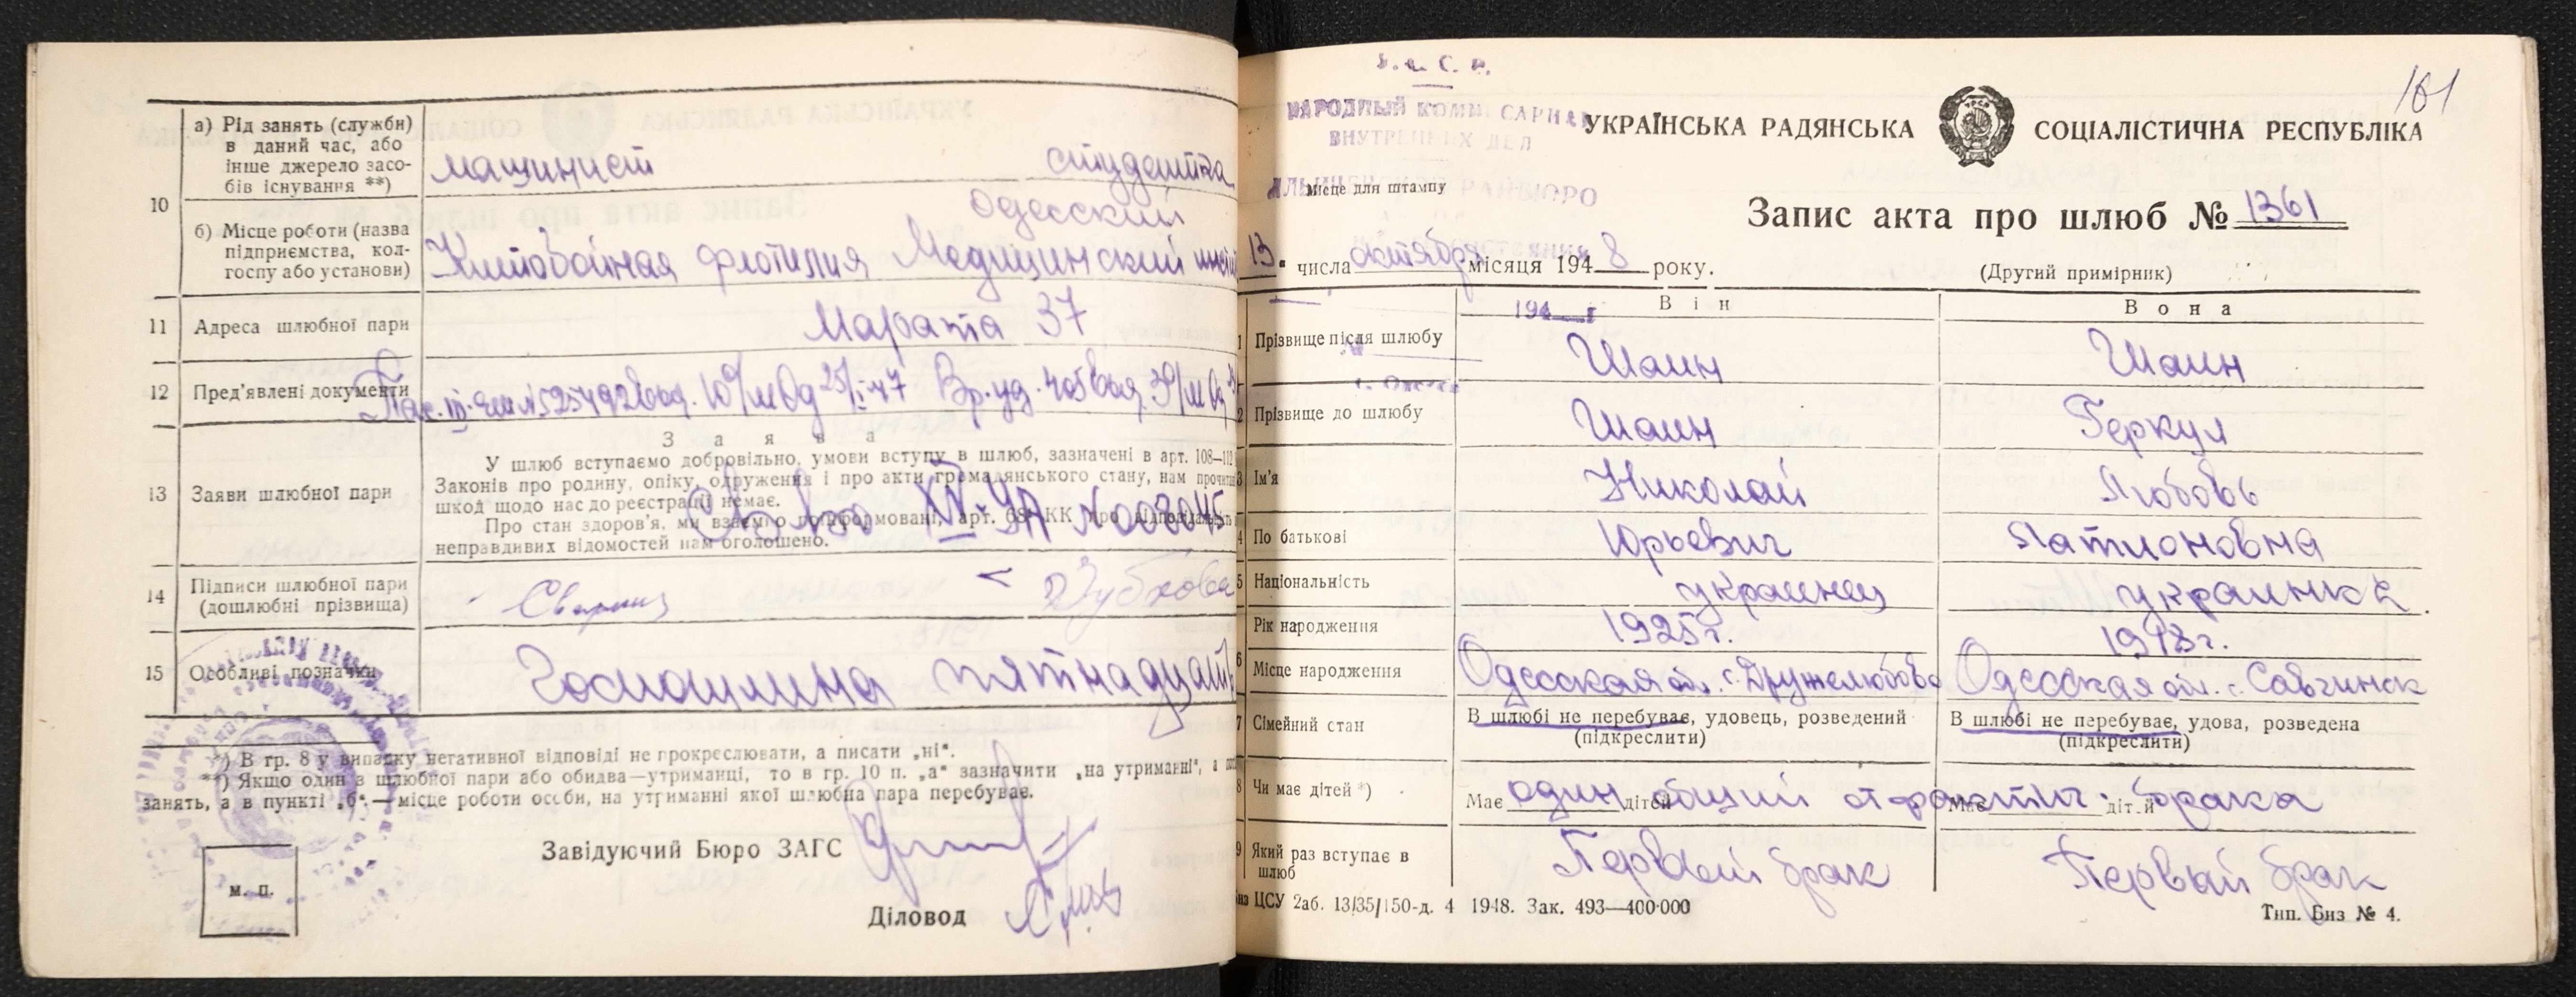 10
а) Рід занять (служби)
в даний час, або
інше джерело засо-
бів існування **)
машинист
студентка
б) Місце роботи (назва
підприємства, кол-
госпу або установи)
Одесский
Китобойная флотилия Медицинский инст
11
Адреса шлюбної пари
Марата 37
12
Пред'явлені документи
13
Заяви шлюбної пари
З а я в а
У шлюб вступаємо добровільно, умови вступу в шлюб, зазначені в арт. 108—112
Законів про родину, опіку, одруження і про акти громадянського стану, нам прочитані
шкод щодо нас до реєстрації немає.
Про стан здоров'я, ми взаємно поінформовані, арт. 68 КК про відповідальн
неправдивих відомостей нам оголошено.
14
Підписи шлюбної пари
(дошлюбні прізвища)
15
Особливі позначки
Госпошлина пятнадцать
*) В гр. 8 у випадку негативної відповіді не прокреслювати, а писати „ні“.
**) Якщо один з шлюбної пари або обидва—утриманці, то в гр. 10 п. „а“ зазначити „на утриманні“, а
занять, а в пункті „б“.—місце роботи особи, на утриманні якої шлюбна пара перебуває.
Завідуючий Бюро ЗАГС
м. п.
Діловод
161
НАРОДНЫЙ КОММИССАРИАТ
ВНУТРЕННИХ ДЕЛ
РАЙБЮРО
Місце для штампу
УКРАЇНСЬКА РАДЯНСЬКА СОЦІАЛІСТИЧНА РЕСПУБЛІКА
Запис акта про шлюб № 1361
13 “ числа октября місяця 1948 року.
(Другий примірник)
194 г
Він
Вона
1 Прізвище після шлюбу
Шаин
Шаин
2 Прізвище до шлюбу
Шаин
Геркул
3 Ім'я
Николай
Любовь
4 По батькові
Юрьевич
Платионовна
5 Національність
украинец
украинка
Рік народження
1925 г.
1918 г.
6 Місце народження
Одесская обл. с. Дружелюбовка
Одесская обл. с. Савчинск
7 Сімейний стан
В шлюбі не перебуває, удовець, розведений
(підкреслити)
В шлюбі не перебуває, удова, розведена
(підкреслити)
8 Чи має дітей *)
Має один дітей общий от фактич. брака
Має дітей
9 Який раз вступає в
шлюб
Первый брак
Первый брак
ЦСУ 2аб. 13/35/150-д. 4 1948. Зак. 493—400·000
Тип. Биз № 4.